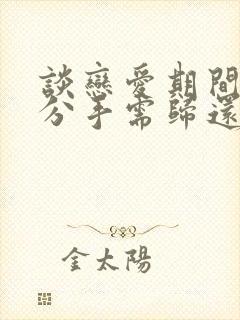 談戀愛期間
分手需歸還
金太陽